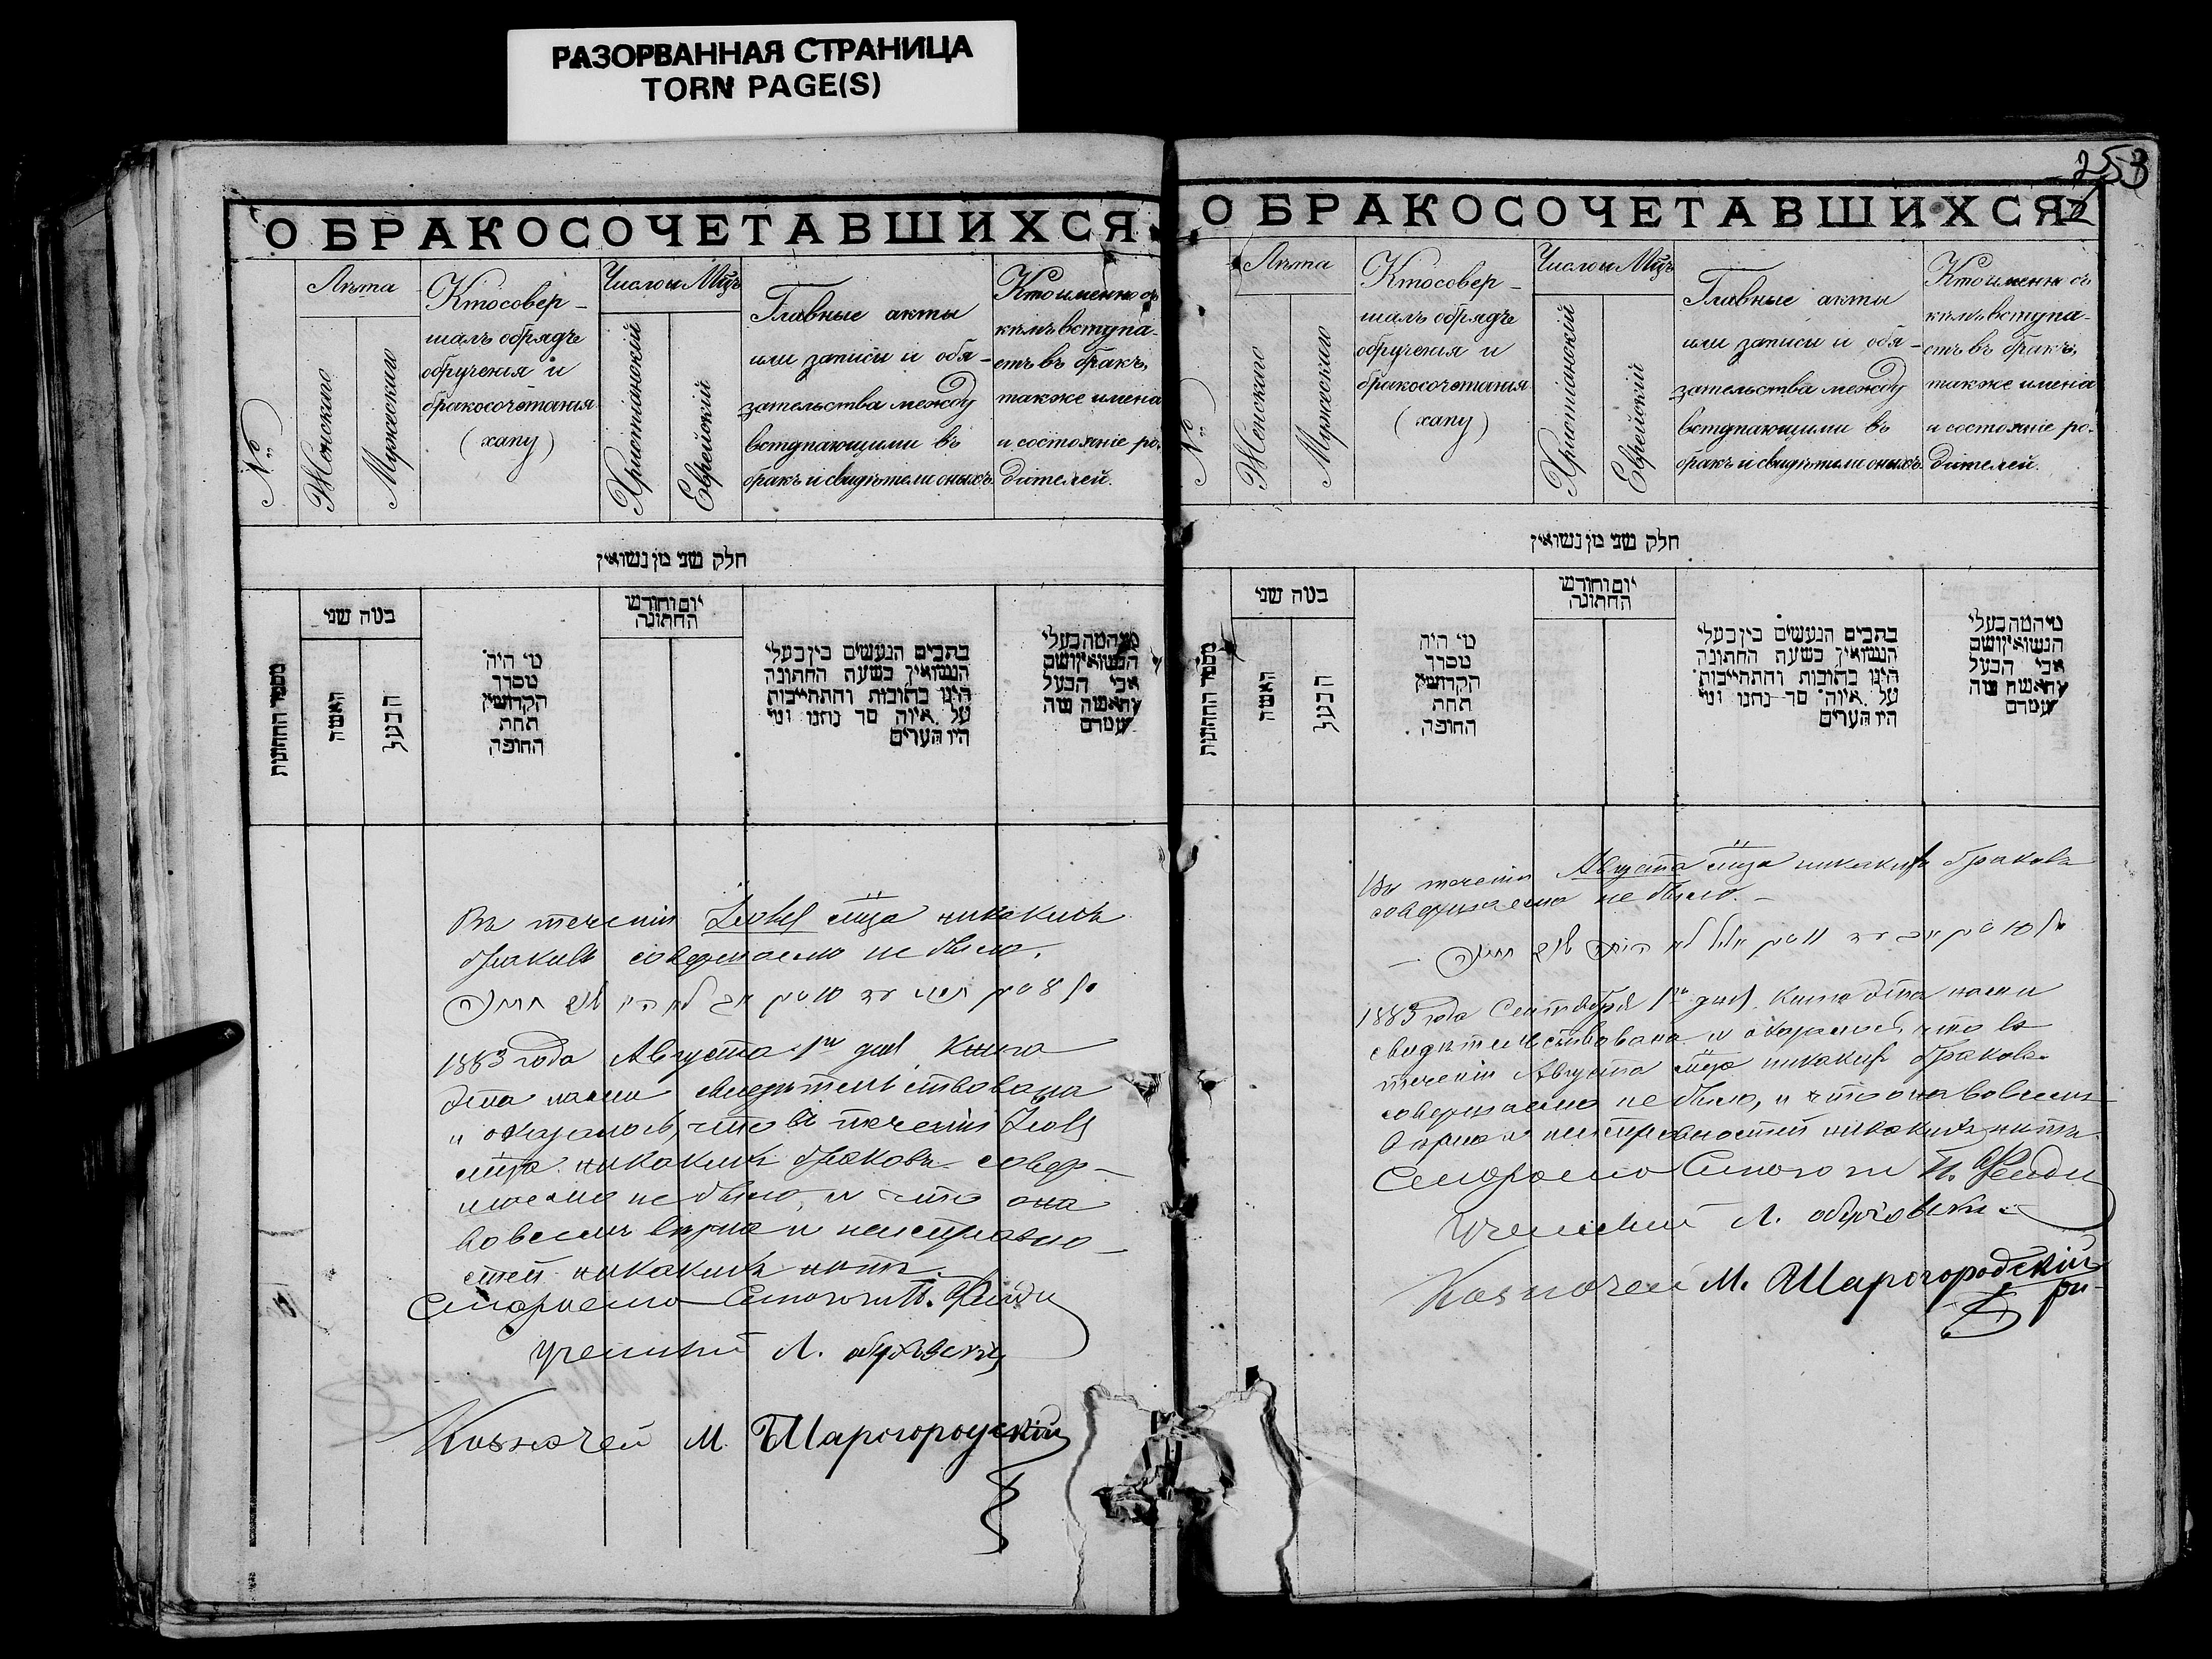 РАЗОРВАННАЯ СТРАНИЦА
TORN PAGE(S)
О БРАКОСОЧЕТАВШИХСЯ
№
Лѣта
Женскаго
Мужескаго
Кто совер-
шалъ обрядъ
обрученія и
бракосочетанія
(хапу)
Число и Мцъ
Христіанскій
Еврейскій
Главные акты
или записи и обя-
зательства между
вступающими въ
бракъ и свидѣтели оныхъ
Кто именно съ
кѣмъ вступа-
етъ въ бракъ,
также имена
и состояніе ро-
дителей.
חלק שני מן נשואין
מספר החתונות
כמה שני
האשה
הבעל
מי היה
מסדר
הקדושין
תחת
החופה
יום וחודש
החתונה
כתבים הנעשים בין בעלי
הנשואין בשעת החתונה
היינו כתובות והתחייבות
על איזה סך נתנו ומי
היו העדים
מי המה בעלי
הנשואין ושם
אבי הבעל
והאשה מה
שמם
Въ теченіи Іюля мца никакихъ
браковъ совершаемо не было.
1883 года Августа 1го дня Книга
эта нами свидѣтельствована
и оказалось, что въ теченіи Іюля
мца никакихъ браковъ совер-
шаемо не было, и что она
во всемъ вѣрна и неисправно-
стей никакихъ нѣтъ.
Старосто
Ученый Л.
Казначей М. Шарогородскій
253
О БРАКОСОЧЕТАВШИХСЯ
№
Лѣта
Женскаго
Мужескаго
Кто совер-
шалъ обрядъ
обрученія и
бракосочетанія
(хапу)
Число и Мцъ
Христіанскій
Еврейскій
Главные акты
или записи и обя-
зательства между
вступающими въ
бракъ и свидѣтели оныхъ
Кто именно съ
кѣмъ вступа-
етъ въ бракъ,
также имена
и состояніе ро-
дителей.
חלק שני מן נשואין
מספר החתונות
כמה שני
האשה
הבעל
מי היה
מסדר
הקדושין
תחת
החופה
יום וחודש
החתונה
כתבים הנעשים בין בעלי
הנשואין בשעת החתונה
היינו כתובות והתחייבות
על איזה סך נתנו ומי
היו העדים
מי המה בעלי
הנשואין ושם
אבי הבעל
והאשה מה
שמם
Въ теченіи Августа мца никакихъ браковъ
совершаемо не было.
1883 года Сентября 1го дня Книга эта нами
свидѣтельствована и оказалось, что въ
теченіи Августа мца никакихъ браковъ
совершаемо не было, и что она во всемъ
вѣрна и неисправностей никакихъ нѣтъ.
Старосто
Ученый Л.
Казначей М. Шарогородскій